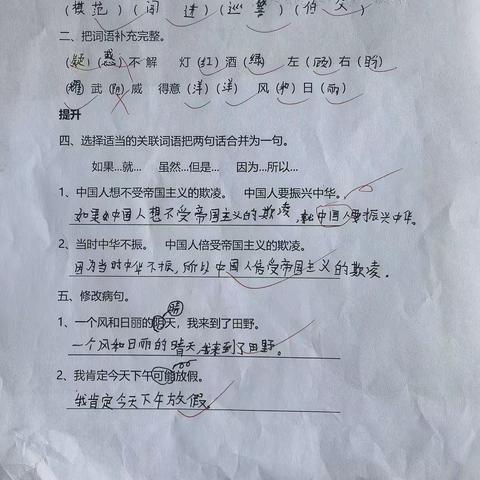 (模 范) (闯 进) (巡 警) (伯 父)
二、把词语补充完整。
(疑)(惑)不 解 灯(红)酒(绿) 左(顾)右(盼)
(耀)武(阴)威 得意(洋)(洋) 风(和)日(丽)
提升
四、选择适当的关联词语把两句话合并为一句。
如果...就... 虽然...但是... 因为...所以...
1、中国人想不受帝国主义的欺凌。 中国人要振兴中华。
如果中国人想不受帝国主义的欺凌,就中国人要振兴中华。
2、当时中华不振。 中国人倍受帝国主义的欺凌。
因为当时中华不振,所以中国人倍受帝国主义的欺凌。
五、修改病句。
晴
1、一个风和日丽的阴天,我来到了田野。
一个风和日丽的晴天,我来到了田野。
2、我肯定今天下午可能放假。
我肯定今天下午放假。